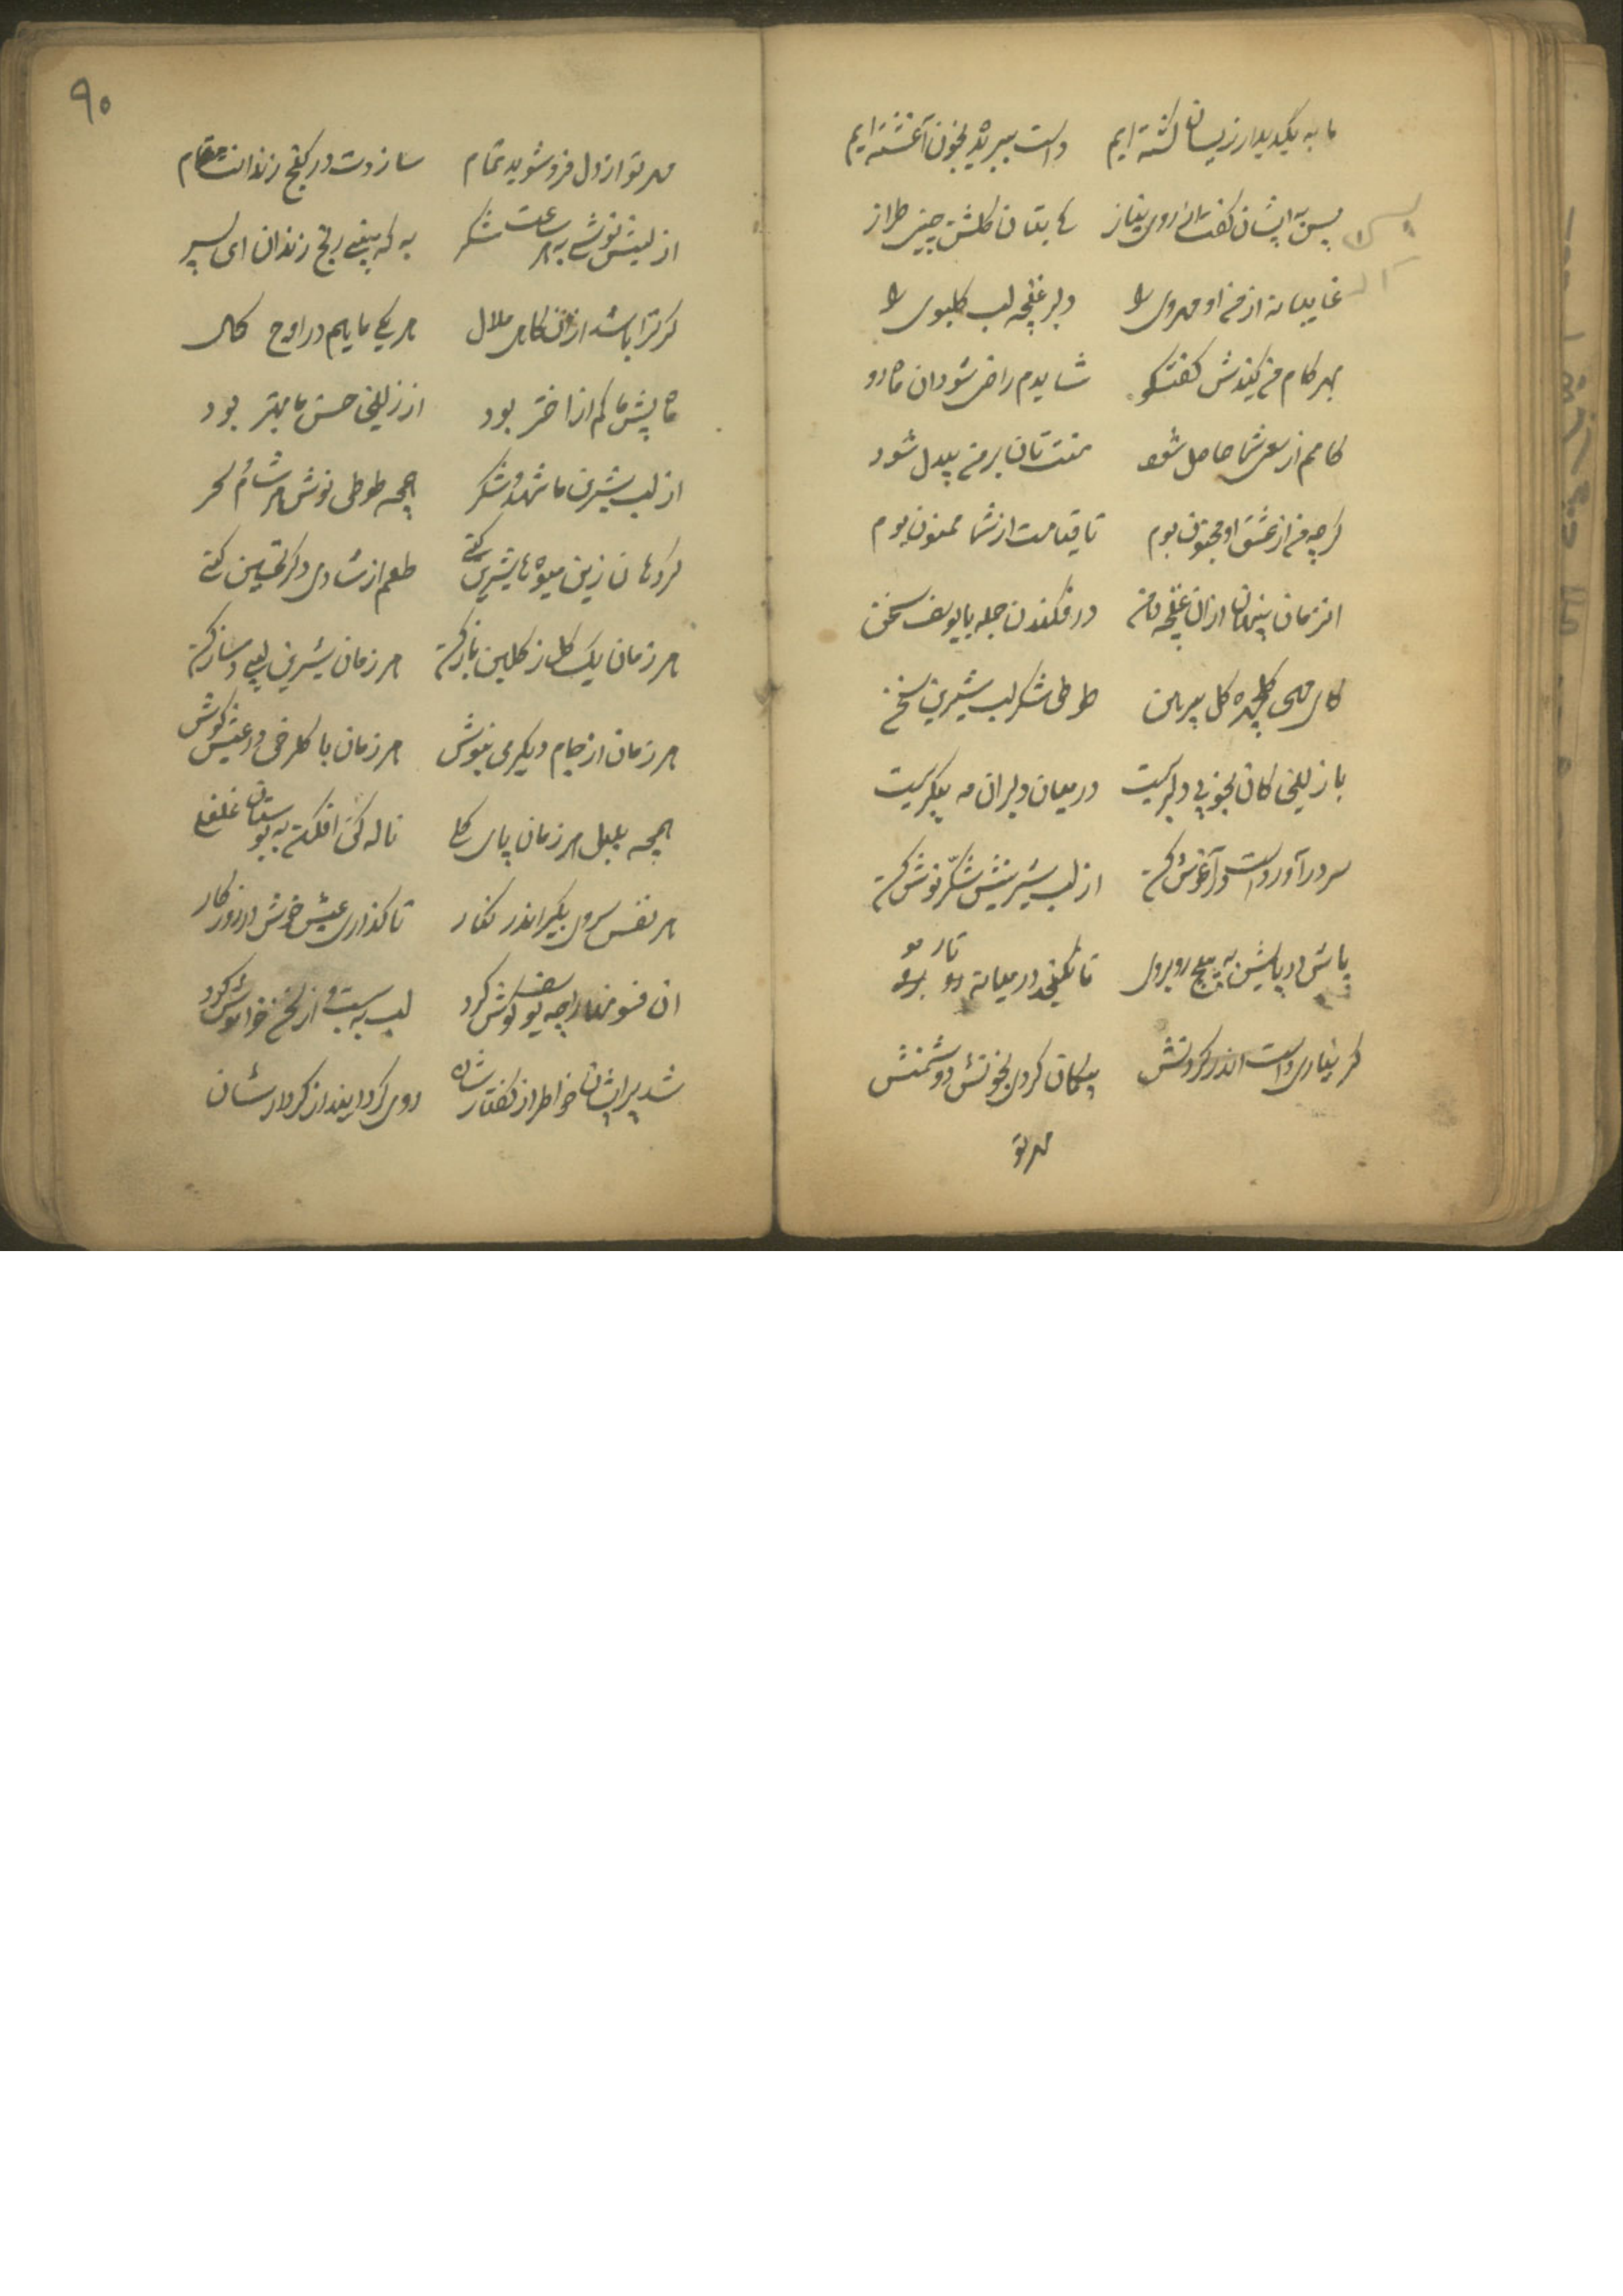 ما به یکدیدار زینسان کشته ایم دست ببریده بخون آغشته ایم
پس به ایشان گفت از روی نیاز کای بتان گلشن چین طراز
غایبانه از من او مهروی را دلبر غنچه لب گلبوی را
بهر کام من کنیدش گفتگو شایدم راضی شود آن ماه رو
کامم از سعی شما حاصل شود منت تان بر من بیدل شود
گرچه من از عشق او مجنون بوم تا قیامت از شما ممنون بوم
انزمان پنهان ازان غنچه دهن در فکندن جمله با یوسف سخن
کای مهی گلچهره گل پیرهن طوطی شکر لب شیرین سخن
با زلیخی کان بخوبی دلبریست در میان دلبران مه پیکریست
سر درآور دست در آغوش کن از لب شیرینش شکر نوش کن
پاش در پایش به پیچ رو بروی تا نگنجد در میانه تار مو
گر نیاری دست اندر گردنش بیگمان گردی بخونش دوشمنش
مهر تو
۹۰
مهر تو از دل فروشوید تمام سازدت در کنج زندانت مقام
از لبش نوشی به هر ساعت شکر به که بینی رنج زندان ای پسر
گر ترا باشد ازان کامی ملال هر یکی ماییم در اوج کمال
ماه پیش ما کم از اختر بود از زلیخی حسن ما بهتر بود
از لب شیرین ما شهد و شکر همچه طوطی نوش هر شام و سحر
گر دهان زین میوه ها شیرین کنی طعم از شادی دگر تحسین کنی
هر زمان یک گل ز گلبن باز کن هر زمان شیرین لبی دمساز کن
هر زمان از جام دیگر می بنوش هر زمان با گلرخی در عیش کوش
همچه بلبل هر زمان پای گلی ناله کن افکن به بوستان غلغلی
هر نفس سروی بگیر اندر کنار تا گذاری عیش خوش در روزگار
ان فسونها را چه یوسف گوش کرد لب به بست و از سخن خواموش کرد
شد پریشان خواطر از گفتارشان روی گردانید از کردارشان